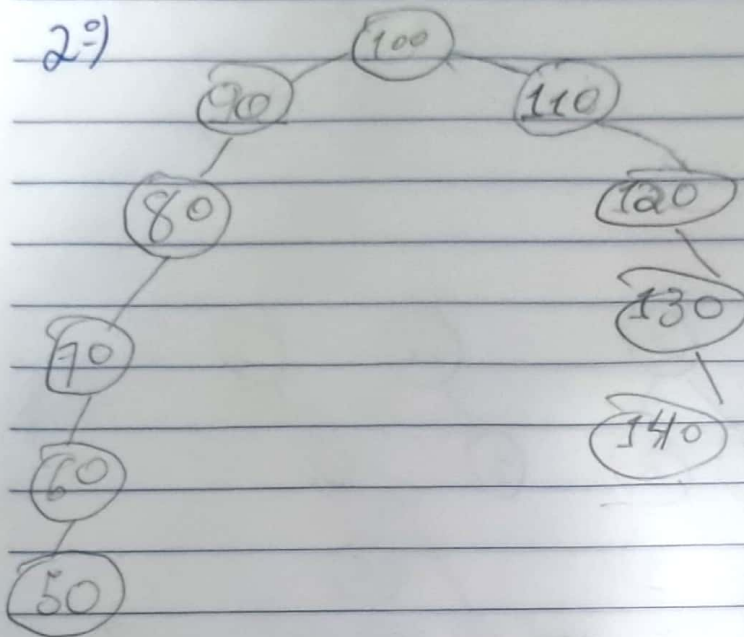 2º)
100
90
110
80
120
70
130
60
140
50